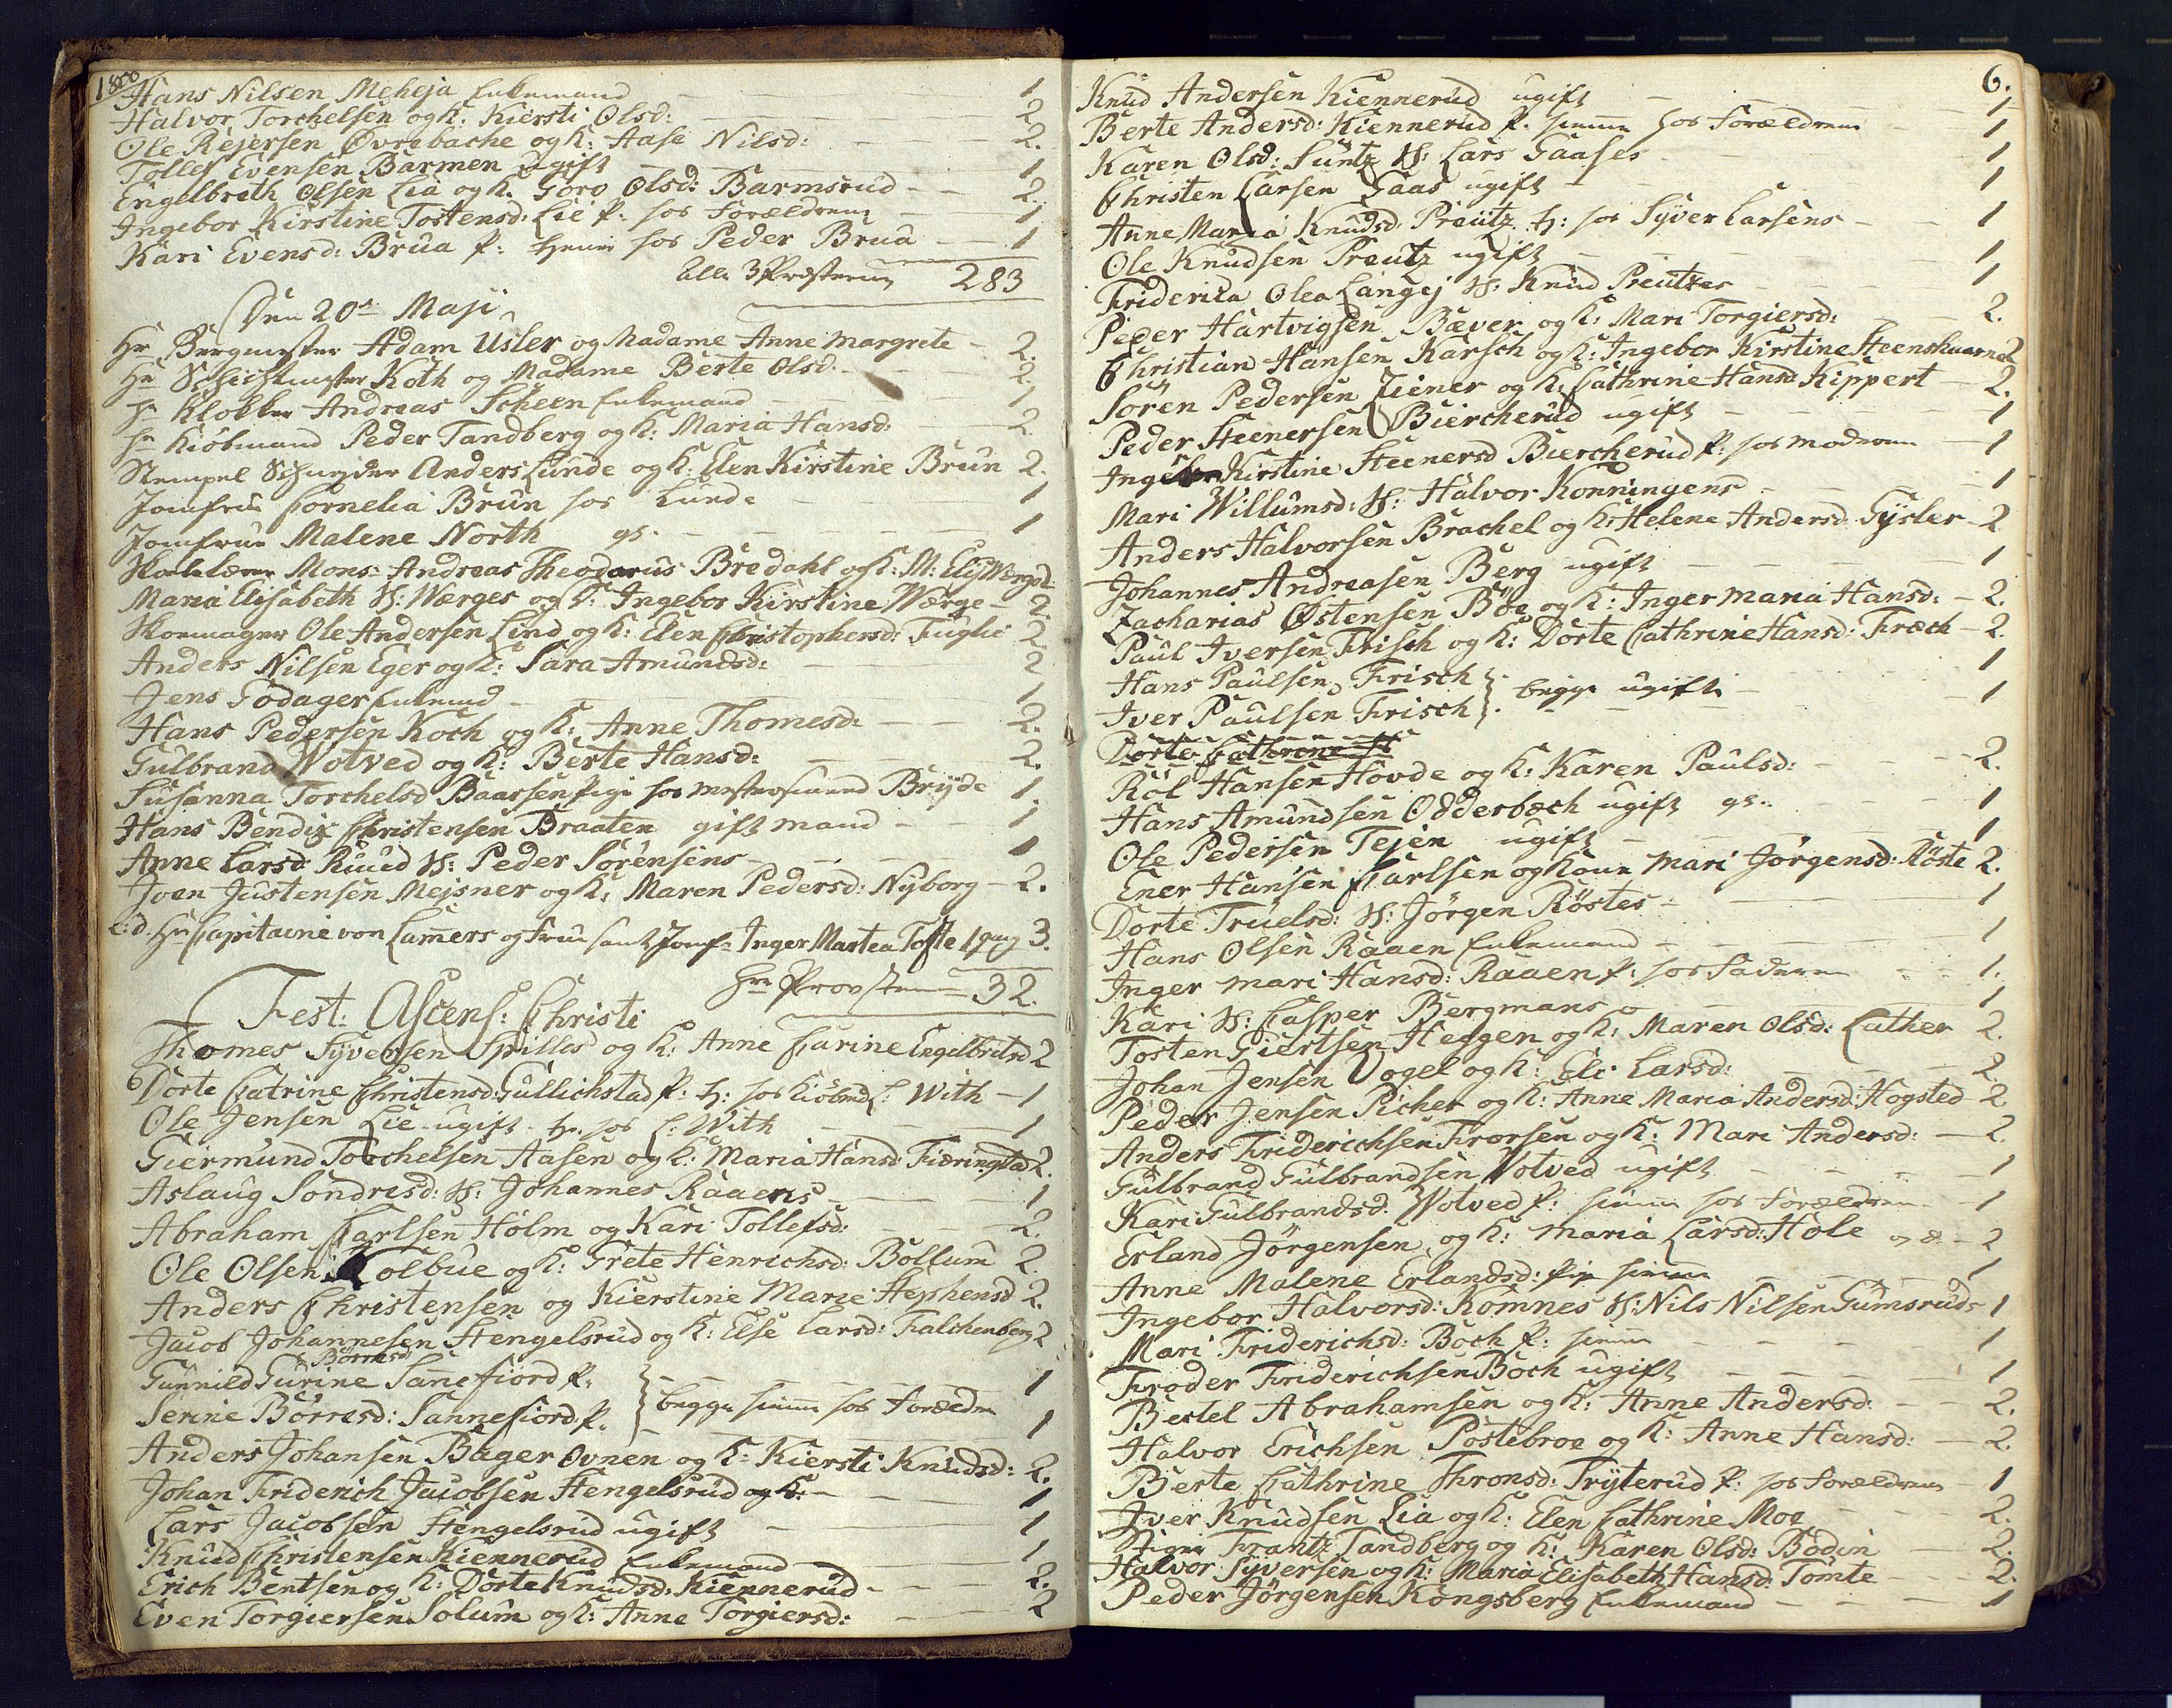 1800
Hans Nilsen Meheja Enkemand 1
Halvor Torchelsen og K: Kiersti Olsd: 2
Ole Rejersen Øvrebache og K: Aase Nilsd: 2.
Tollef Evensen Barmen ugift 1
Engelbreth Olsen Lia og K. Goro Olsd: Barmsrud 2.
Ingebor Kirstine Tostensd: Lie P: hos Forældrene 1
Kari Evensd: Brua P: hos Peder Brua 1
alle 3 Præsterne 283
Den 20de Maji
Hr Bergmester Adam Usler og Madame Anne Margrete 2.
Hr Schichtmester Koth og Madame Berte Olsd. 2.
Hr Klokker Andreas Scheen Enkemand 1
Hr Kiöbmand Peder Tandberg og K: Maria Hansd: 2.
Stempel Schneider Anders Lunde og K: Elen Kirstine Brun 2.
Jomfrue Cornelia Brun hos Lunde 1
Jomfrue Malene North gs. 1
Skolelærer Mons: Andreas Theodorus Bredahl og K: M: Elis Wærgs 2.
Maria Elisabeth H: Wærges og D: Ingebor Kirstine Wærge 2.
Skomager Ole Andersen Lind og K: Elen Christophersd: Fuglie 2
Anders Nilsen Eger og K: Sara Amundsd: 2
Jens Godager Enkemd 1
Hans Pedersen Koch og K: Anne Thomesd: 2.
Gulbrand Wotved og K: Berte Hansd: 2.
Susanna Torchelsd Baarsen Pige hos Mestersvend Bryde 1.
Hans Bendix Christensen Braaten gift mand 1
Anne Larsd Ruud H: Peder Sörensens 1
Joen Justensen Mejsner og K: Maren Pedersd: Nyborg 2.
e: d. Hr Capitaine von Lamers og Frue samt Jomf: Inger Martea Tofte 1 gang 3.
Hr Provsten 32.
Fest: Ascens: Christi
Thomes Syversen Spilles og K: Anne Carine Engelbretsd 2
Dorte Catrine Christensd: Gullichstad P: tj: hos Kiöbmd C: With 1
Ole Jensen Lie ugift tj. hos C: With 1
Giermund Torchelsen Aasen og K: Maria Hansd Fieringstad 2.
Aslaug Sondresd: H: Johannes Raaens 1
Abraham Carlsen Holm og Kari Tollefsd: 2.
Ole Olsen Kolbue og K: Grete Henrichsd: Bollum 2.
Anders Christensen og Kierstine Marie Stephensd 2.
Jacob Johannesen Stengelsrud og K: Else Larsd: Falchenberg 2
Börresd
Gunnild Gurine Sanefiord P. 1
Serine Börresd: Sannefiord P. begge hiemme hos Forældre 1
Anders Johansen Bager Ovnen og K: Kiersti Knudsd: 2.
Johan Friderich Jacobsen Stengelsrud og K: 1
Lars Jacobsen Stengelsrud ugift 1
Knud Christensen Kiennerud Enkemand 1
Erich Bentsen og K: Dorte Knudsd: Kiennerud 2.
Even Torgiersen Solum og K: Anne Torgiersd: 2
6.
Knud Andersen Kiennerud ugift 1
Berte Andersd: Kiennerud P. hiemme hos Forældrene 1
Karen Olsd: Suntz H: Lars Gaases 1
Christen Larsen Gaas ugift 1
Anne Maria Knudsd. Preutz tj: hos Syver Larsens 1
Ole Knudsen Preutz ugift 1
Friderica Olea Langej H: Knud Preutzes 1
Peder Hartvigsen Bæver og K: Mari Torgiersd: 2.
Christian Hansen Karsch og K: Ingebor Kirstine Steenshuarne 2
Sören Pedersen Ziener og K: Cathrine Hansd Kippert 2.
Peder Steenersen Biercherud ugift 1
Ingebor Kirstine Steenersd Biercherud P: hos Moderen 1
Mari Willumsd: H: Halvor Konningens 1
Anders Halvorsen Brachel og K: Helene Andersd: Gysler 2
Johannes Andreasen Berg ugift 1
Zacharias Østensen Böe og K: Inger Maria Hansd: 2.
Paul Iversen Frisch og K: Dorte Cathrine Hansd: Fræch 2.
Hans Paulsen Frisch 1
Iver Paulsen Frisch begge ugifte 1
Dorte Cathrine H
Röl Hansen Hovde og K: Karen Paulsd: 2.
Hans Amundsen Odderbæch ugift gs. 1
Ole Pedersen Tejen ugift 1
Ener Hansen Carlsen og Kone Mari Jörgensd: Röste 2.
Dorte Truelsd: H: Jörgen Röstes 1
Hans Olsen Raaen Enkemand 1
Inger Mari Hansd: Raaen P: hos Faderen 1.
Kari H: Casper Bergmans 1
Tosten Giertsen Heggen og K: Maren Olsd: Luther 2.
Johan Jensen Vogel og K: Eli Larsd: 2.
Peder Jensen Picher og K: Anne Maria Andersd: Hogsted 2.
Anders Friderichsen Frorsen og K: Mari Andersd: 2.
Gulbrand Gulbrandsen Votved ugift 1
Kari Gulbrandsd. Wotved P: hiemme hos Forældrene 1
Erland Jörgensen og K: Maria Larsd: Hole 2
Anne Malene Erlandsd: Pige hiemme 1
Ingebor Halvorsd: Komnes H: Nils Nilsen Gumsruds 1
Mari Friderichsd: Boch P: hiemme 1
Froder Friderichsen Boch ugift 1
Bertel Abrahamsen og K: Anne Andersd: 2.
Halvor Erichsen Postebroe og K: Anne Hansd: 2.
Berte Cathrine Thronsd: Tryterud P: hos Forældrene 1
Iver Knudsen Lia og K: Elen Cathrine Moe 2.
Stiger Frantz Tandberg og K: Karen Olsd: Bodin 2.
Halvor Syversen og K: Maria Elisabeth Hansd: Tomte 2.
Peder Jörgensen Kongsberg Enkemand 1